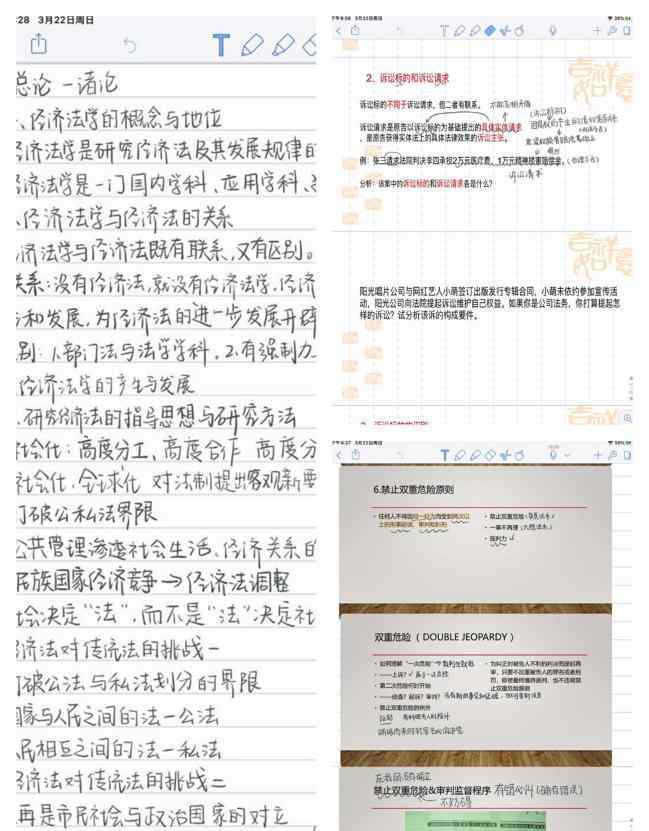 :28 3月22日周日
总论 一绪论
、经济法学的概念与地位
经济法学是研究经济法及其发展规律的
经济法学是一门国内学科、应用学科、
、经济法学与经济法的关系
济法学与经济法既有联系,又有区别。
关系:没有经济法,就没有经济法学,经济
和发展,为经济法的进一步发展开辟
别:1.部门法与法学学科,2.有强制力
经济法学的产生与发展
、研究经济法的指导思想与研究方法
社会化:高度分工、高度合作 高度分
社会化、全球化 对法制提出客观新要
打破公私法界限
公共管理渗透社会生活、经济关系的
民族国家经济竞争→经济法调整
社会决定“法”,而不是“法”决定社
经济法对传统法的挑战一
打破公法与私法划分的界限
国家与人民之间的法一公法
人民相互之间的法一私法
经济法对传统法的挑战二
再是市民社会与政治国家的对立
下午6:28 3月22日周日
2、诉讼标的和诉讼请求
诉讼标的不同于诉讼请求,但二者有联系。
诉讼请求是原告以诉讼标的为基础提出的具体实体请求
,是原告获得实体法上的具体法律效果的诉讼主张。
例:张三请求法院判决李四承担2万元医疗费、1万元精神损害赔偿金。
诉讼请求
分析:该案中的诉讼标的和诉讼请求各是什么?
吉祥
阳光唱片公司与网红艺人小萌签订出版发行专辑合同,小萌未依约参加宣传活
动,阳光公司向法院提起诉讼维护自己权益。如果你是公司法务,你打算提起怎
样的诉讼?试分析该诉的构成要件。
下午6:27 3月22日周日
6.禁止双重危险原则
• 任何人不得因同一行为而受到两次以
上的刑事起诉、审判和科刑
• 禁止双重危险
• 一事不再理
• 既判力
双重危险(DOUBLE JEOPARDY)
• 如何理解“一次危险”
• ——上诉?
• 第二次危险何时开始
• ——侦查?起诉?审判?
• 禁止双重危险的例外
• 为纠正对被告人不利的判决而提起再
审,只要不加重被告人的罪名或者刑
罚,即使最终维持原判,也不违背禁
止双重危险原则
禁止双重危险&审判监督程序 有错必纠